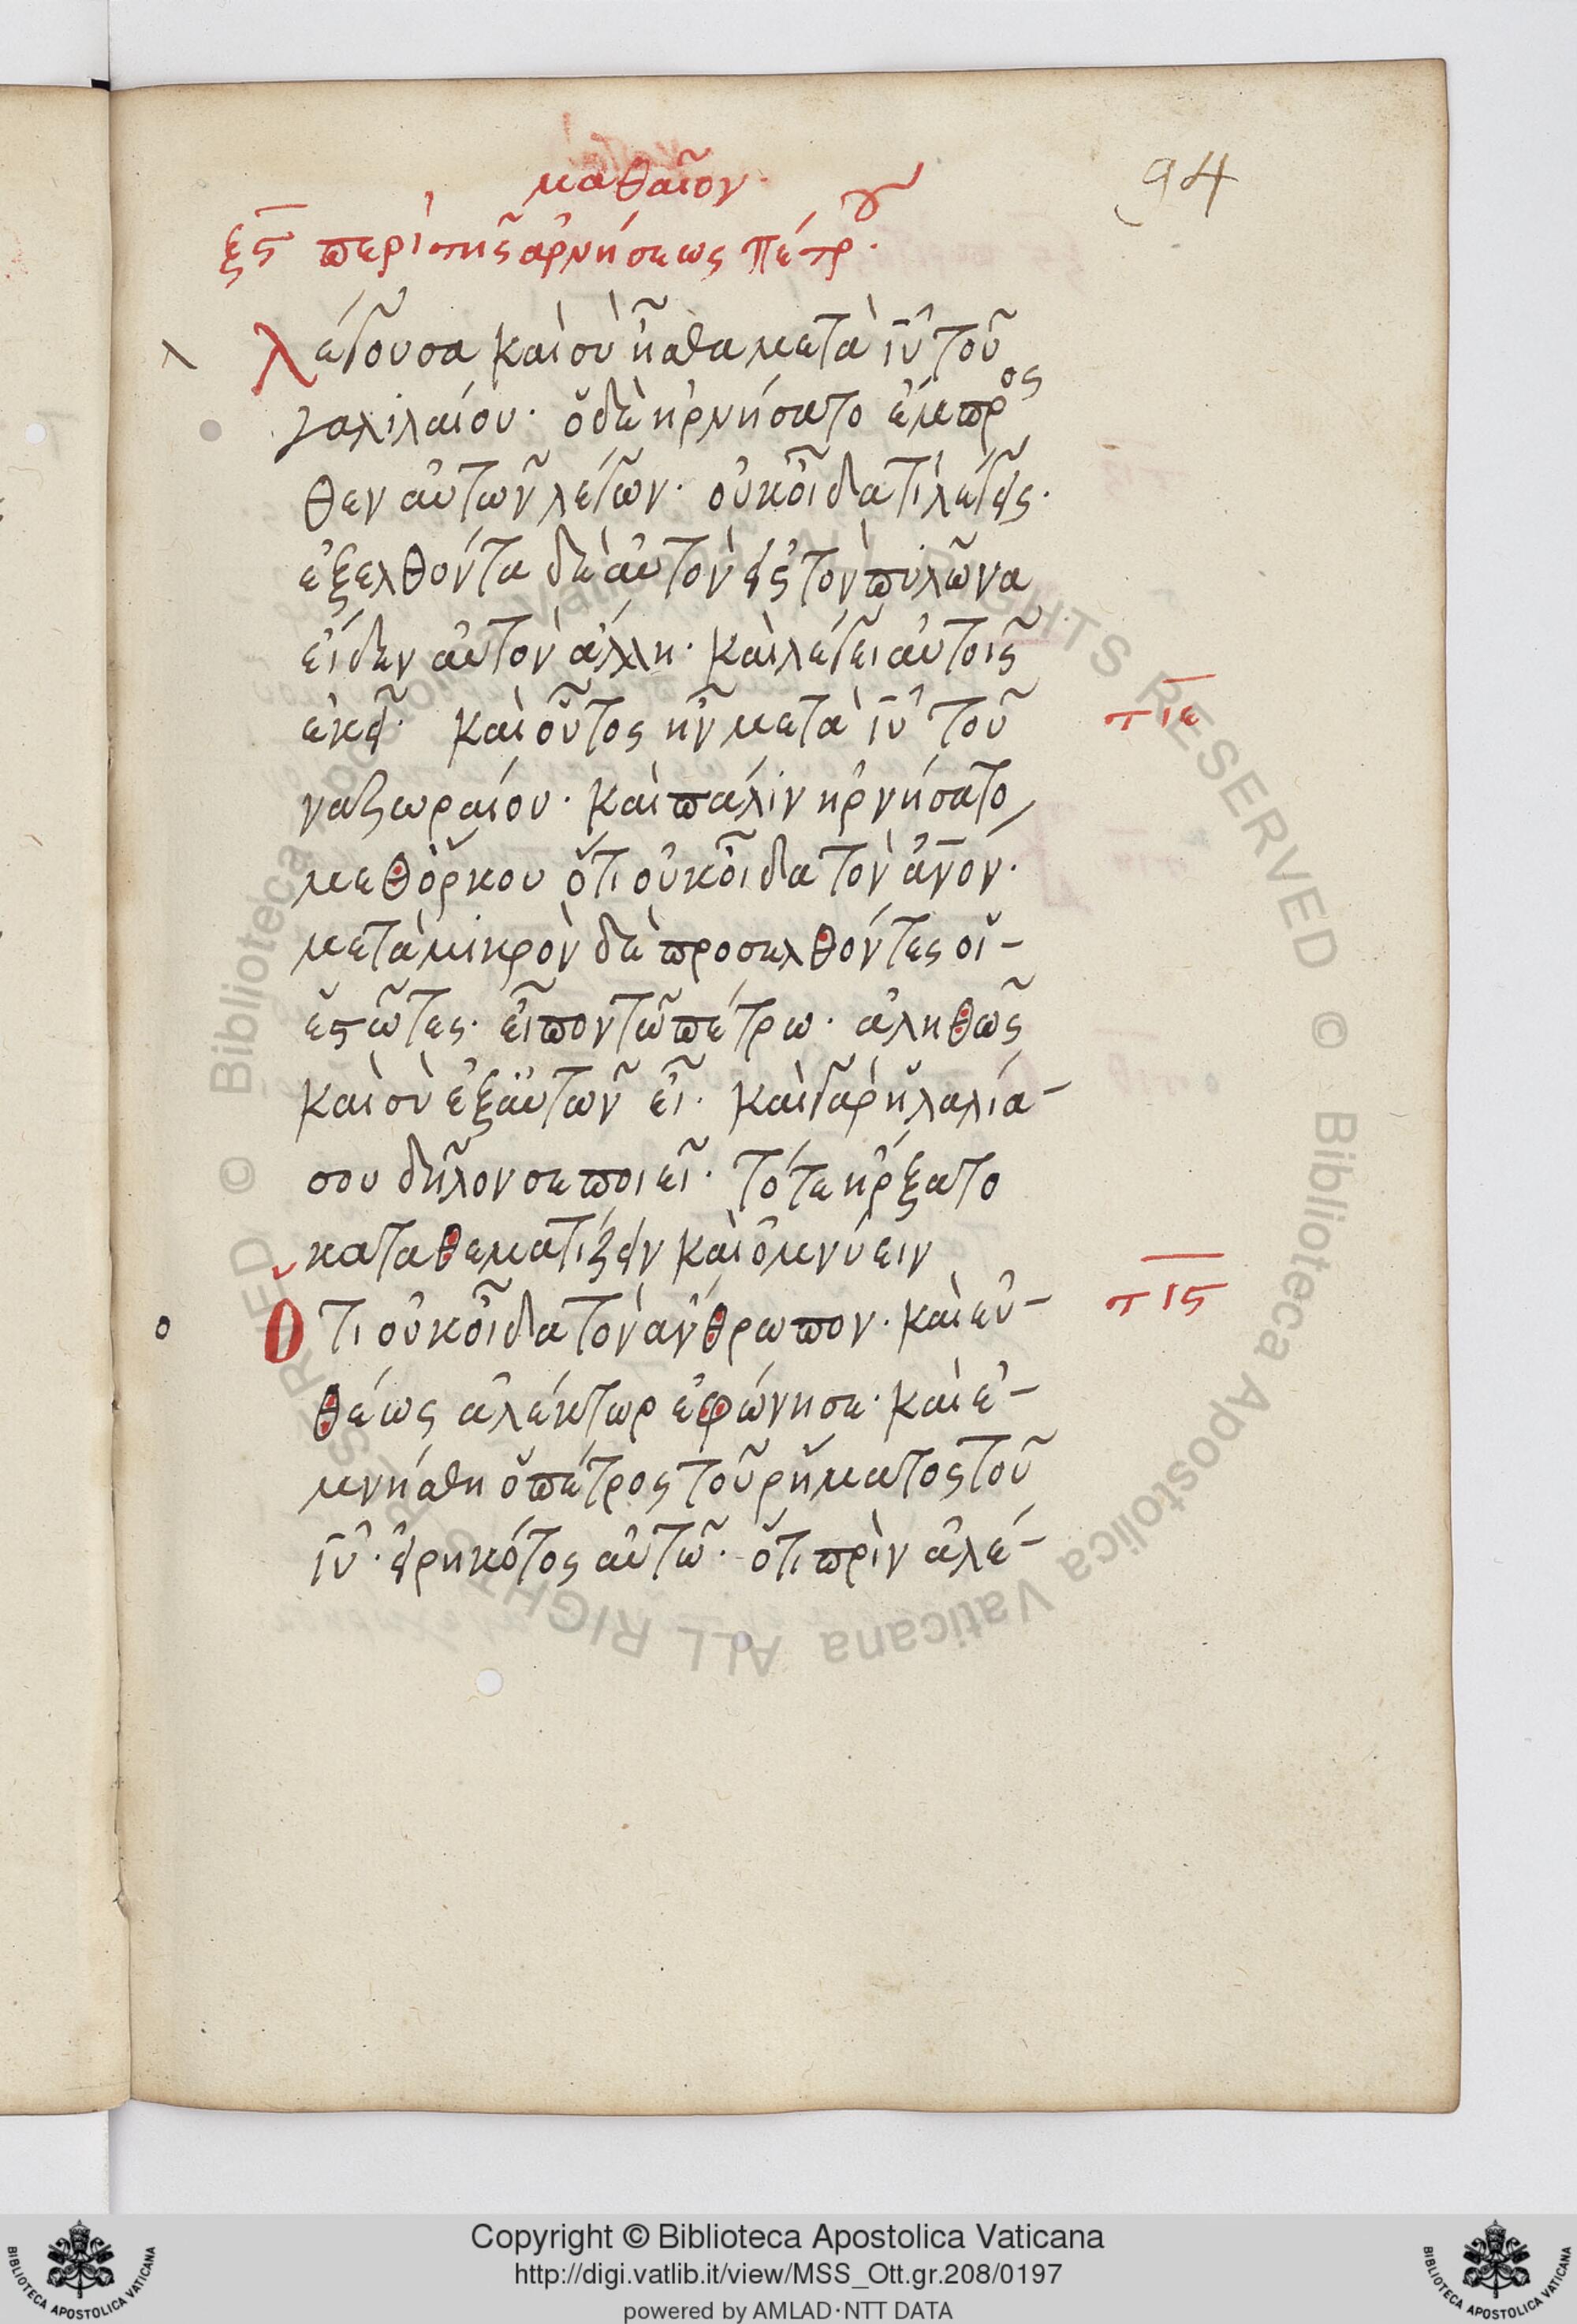 μαθαῖον
94
ξς περὶ τῆς ἀρνήσεως πέτρου.
λέγουσα καὶ σὺ ἦσθα μετὰ ἰῦ τοῦ
γαλιλαίου· ὁ δὲ ἠρνήσατο ἔμπρος
θεν αὐτῶν λέγων· οὐκ οἶδα τί λέγεις·
ἐξελθόντα δὲ αὐτὸν εἰς τὸν πυλῶνα
εἶδεν αὐτὸν ἄλλη· καὶ λέγει αὐτοῖς
ἐκεῖ· καὶ οὗτος ἦν μετὰ ἰῦ τοῦ
τιε
ναζωραίου· καὶ πάλιν ἠρνήσατο
μεθ' ὅρκου ὅτι οὐκ οἶδα τὸν ἄνον·
μετὰ μικρὸν δὲ προσελθόντες οἱ-
ἑστῶτες· εἶπον τῶ πέτρω· ἀληθῶς
καὶ σὺ ἐξ αὐτῶν εἶ· καὶ γὰρ ἡ λαλιά-
σου δῆλον σε ποιεῖ· τότε ἤρξατο
καταθεματίζειν καὶ ὀμνύειν
Ὅτι οὐκ οἶδα τὸν ἄνθρωπον· καὶ εὐ-
τις
θέως ἀλέκτωρ ἐφώνησε· καὶ ἐ-
μνήσθη ὁ πέτρος τοῦ ῥήματος τοῦ
ἰῦ· εἰρηκότος αὐτῶ· ὅτι πρὶν ἀλέ-
Copyright © Biblioteca Apostolica Vaticana
http://digi.vatlib.it/view/MSS_Ott.gr.208/0197
powered by AMLAD·NTT DATA
BIBLIOTECA APOSTOLICA VATICANA
BIBLIOTECA APOSTOLICA VATICANA
© Biblioteca Apostolica Vaticana ALL RIGHTS RESERVED © Biblioteca Apostolica Vaticana ALL RIGHTS RESERVED